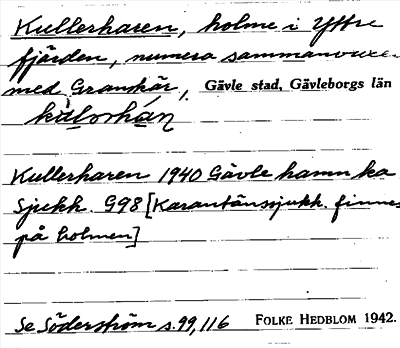 Kullerharen, holme i Yttre
fjärden, numera sammanvuxen
med Granskär, Gävle stad, Gävleborgs län
Kullerharen 1940 Gävle hamn ka
Sjukh. G98 [Karantänssjukh. finnes
på holmen]
Se Söderström s. 99, 116 FOLKE HEDBLOM 1942.